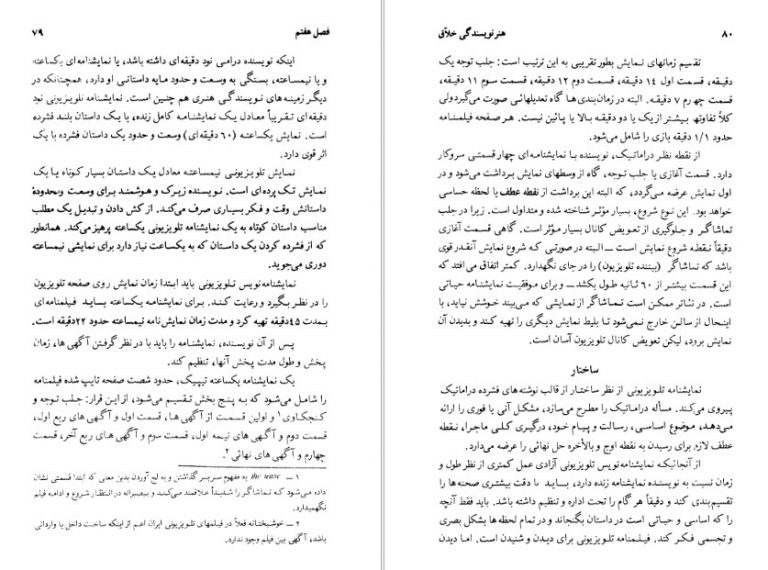 فصل هفتم ۷۹
اینکه نویسنده درامی نود دقیقه‌ای داشته باشد، یا نمایشنامه‌ای یکساعته
و یا نیمساعته، بستگی به وسعت و حدود مایه داستانی او دارد، همچنانکه در
دیگر زمینه‌های نویسندگی هنری هم چنین است. نمایشنامه تلویزیونی نود
دقیقه‌ای تقریباً معادل یک نمایشنامه کامل زنده، یا یک داستان بلند فشرده است.
نمایش یکساعته (۶۰ دقیقه‌ای) وسعت و حدود یک داستان فشرده با یک
اثر قوی دارد.
نمایش تلویزیونی نیمساعته معادل یک داستان بسیار کوتاه یا یک
نمایش تک پرده‌ای است. نویسنده زیرک و هوشمند برای وسعت ومحدودۀ
داستانش وقت و فکر بسیاری صرف می‌کند. از کش دادن و تبدیل یک مطلب
مناسب داستان کوتاه به یک نمایشنامه تلویزیونی یکساعته پرهیز می‌کند. همانطور
که از فشرده کردن یک داستان که به یکساعت نیاز دارد برای نمایشی نیمساعته
دوری می‌جوید.
نمایشنامه‌نویس تلویزیونی باید ابتدا زمان نمایش روی صفحه تلویزیون
را در نظر بگیرد و رعایت کند. برای نمایشنامه یکساعته باید فیلمنامه‌ای
بمدت ۴۵دقیقه تهیه کرد و مدت زمان نمایش‌نامه نیمساعته حدود ۲۲دقیقه است.
پس از آن نویسنده، نمایشنامه را باید با در نظر گرفتن آگهی ها، زمان
پخش و طول مدت پخش آنها، تنظیم کند.
یک نمایشنامه یکساعته تیپیک، حدود شصت صفحه تایپ شده فیلمنامه
را شامل می‌شود که به پنج بخش تقسیم می‌شود، از این قرار: جلب توجه و
کنجکاوی۱ و اولین قسمت از آگهی ها، قسمت اول و آگهی های ربع اول،
قسمت دوم و آگهی های نیمه اول، قسمت سوم و آگهی های ربع آخر، قسمت
چهارم و آگهی های نهائی.۲
۱ – the tease به مفهوم سربسر گذاشتن و به لج آوردن بدین معنی که ابتدا قسمتی نشان
داده می‌شود که تماشاگر را شدیداً علاقمند می‌کند و بیصبرانه در انتظار شروع و ادامه فیلم
نگهمیدارد.
۲ – خوشبختانه فعلاً در فیلمهای تلویزیونی ایران اعم از اینکه ساخت داخل یا وارداتی
باشد، آگهی بین فیلم وجود ندارد.
۸۰ هنر نویسندگی خلاّق
تقسیم زمانهای نمایش بطور تقریبی به این ترتیب است: جلب توجه یک
دقیقه، قسمت اول ۱۴ دقیقه، قسمت دوم ۱۲ دقیقه، قسمت سوم ۱۱ دقیقه،
قسمت چهارم ۷ دقیقه. البته در زمان‌بندی‌ها گاه تعدیلهائی صورت می‌گیردولی
کلاً تفاوتها بیشتر از یک یا دو دقیقه بالا یا پائین نیست. هر صفحه فیلمنامه
حدود ۱/۱ دقیقه بازی را شامل می‌شود.
از نقطه نظر دراماتیک، نویسنده با نمایشنامه‌ای چهار قسمتی سروکار
دارد. قسمت آغازی یا جلب توجه، گاه از وسطهای نمایش برداشت می‌شود و در
اول نمایش عرضه می‌گردد، که البته این برداشت از نقطه عطف یا لحظه حساسی
خواهد بود. این نوع شروع، بسیار مؤثر شناخته شده و متداول است. زیرا در جلب
تماشاگر و جلوگیری از تعویض کانال بسیار مؤثر است. گاهی قسمت آغازی
دقیقاً نقطه شروع نمایش است — البته در صورتی که شروع نمایش آنقدر قوی
باشد که تماشاگر (بیننده تلویزیون) را در جای نگهدارد. کمتر اتفاق می‌افتد که
این قسمت بیشتر از ۶۰ ثانیه طول بکشد — و برای موفقیت نمایشنامه حیاتی
است. در تئاتر ممکن است تماشاگر از نمایشی که می‌بیند خوشش نیاید، با
اینحال از سالن خارج نمی‌شود تا بلیط نمایش دیگری را تهیه کند و بدیدن آن
نمایش برود، لیکن تعویض کانال تلویزیون آسان است.
ساختار
نمایشنامه تلویزیونی از نظر ساختار از قالب نوشته‌های فشرده دراماتیک
پیروی می‌کند. مسأله دراماتیک را مطرح می‌سازد، مشکل آنی یا فوری را ارائه
می‌دهد، موضوع اساسی، رسالت و پیام خود، درگیری کلی ماجرا، نقطه
عطف لازم برای رسیدن به نقطه اوج و بالأخره حل نهائی را عرضه می‌دارد.
از آنجائیکه نمایشنامه نویس تلویزیونی آزادی عمل کمتری از نظر طول و
زمان نسبت به نویسنده نمایشنامه زنده دارد، باید با دقت بیشتری صحنه ها را
تقسیم‌بندی کند و دقیقاً هر گام را تحت اداره و تنظیم داشته باشد. باید فقط آنچه
را که اساسی و حیاتی است در داستان بگنجاند و در تمام لحظه‌ها بشکل بصری
و تجسمی فکر کند. فیلمنامه تلویزیونی برای دیدن و شنیدن است. اما دیدن